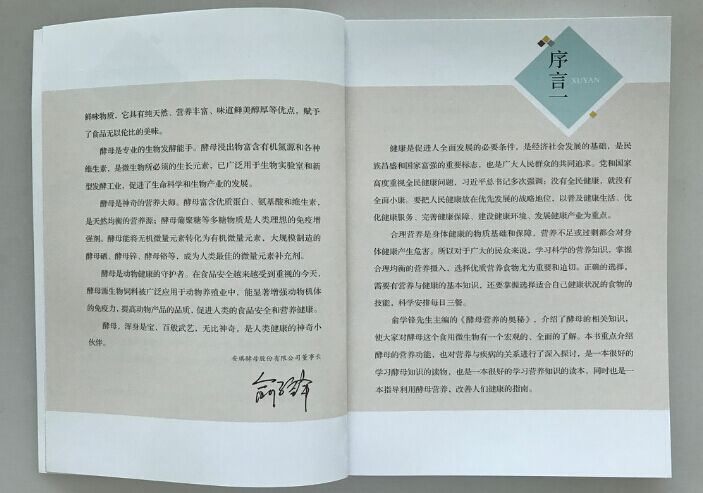 鲜味物质，它具有纯天然、营养丰富、味道鲜美醇厚等优点，赋予
了食品无以伦比的美味。
酵母是专业的生物发酵能手。酵母浸出物富含有机氮源和各种
维生素，是微生物所必须的生长元素，已广泛用于生物实验室和新
型发酵工业，促进了生命科学和生物产业的发展。
酵母是神奇的营养大师。酵母富含优质蛋白、氨基酸和维生素，
是天然均衡的营养源；酵母葡聚糖等多糖物质是人类理想的免疫增
强剂。酵母能将无机微量元素转化为有机微量元素，大规模制造的
酵母硒、酵母锌、酵母铬等，成为人类最佳的微量元素补充剂。
酵母是动物健康的守护者。在食品安全越来越受到重视的今天，
酵母源生物饲料被广泛应用于动物养殖业中，能显著增强动物机体
的免疫力，提高动物产品的品质，促进人类的食品安全和营养健康。
酵母，浑身是宝、百般武艺，无比神奇，是人类健康的神奇小
伙伴。
安琪酵母股份有限公司董事长
俞学锋
序言一
XUYAN
健康是促进人全面发展的必要条件，是经济社会发展的基础，是民
族昌盛和国家富强的重要标志，也是广大人民群众的共同追求。党和国家
高度重视全民健康问题，习近平总书记多次强调：没有全民健康，就没有
全面小康。要把人民健康放在优先发展的战略地位，以普及健康生活、优
化健康服务、完善健康保障、建设健康环境、发展健康产业为重点。
合理营养是身体健康的物质基础和保障，营养不足或过剩都会对身
体健康产生危害。所以对于广大的民众来说，学习科学的营养知识，掌握
合理均衡的营养摄入，选择优质营养食物尤为重要和迫切。正确的选择，
需要有营养与健康的基本知识，还要掌握选择适合自己健康状况的食物的
技能，科学安排每日三餐。
俞学锋先生主编的《酵母营养的奥秘》，介绍了酵母的相关知识，
使大家对酵母这个食用微生物有一个宏观的、全面的了解。本书重点介绍
酵母的营养功能，也对营养与疾病的关系进行了深入探讨，是一本很好的
学习酵母知识的读物，也是一本很好的学习营养知识的读本，同时也是一
本指导利用酵母营养、改善人们健康的指南。